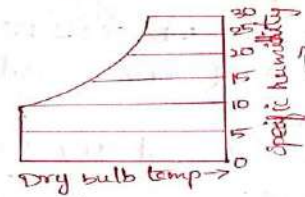 30
25
20
15
10
5
0
Specific humidity
Dry bulb temp →